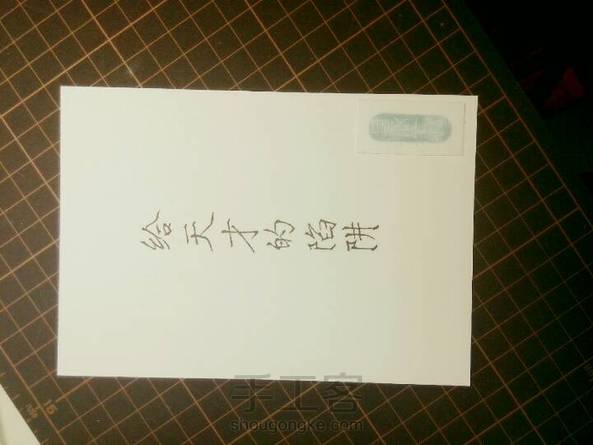 给天才的陷阱
15
手工客
shougongke.com